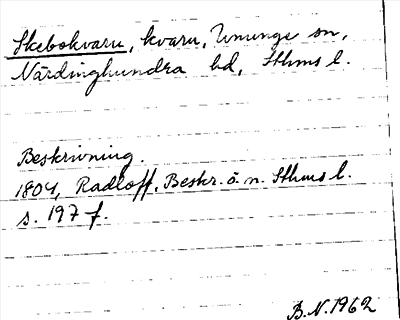 Skebokvarn, kvarn, Ununge sn,
Närdinghundra hd, Sthms l.
Beskrivning.
1804, Radloff, Beskr. ö. n. Sthms l.
s. 197 f.
B.N. 1962